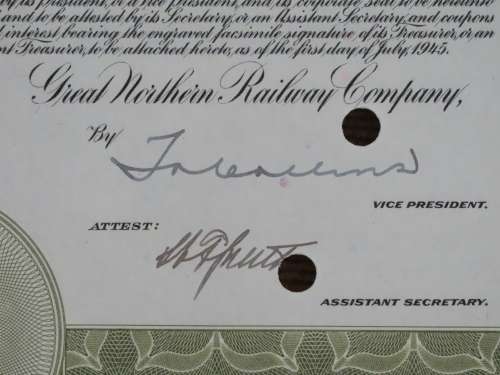 by its President, or a Vice President, and its corporate seal to be hereunto
and to be attested by its Secretary, or an Assistant Secretary, and coupons
interest bearing the engraved facsimile signature of its Treasurer, or an
nt Treasurer, to be attached hereto, as of the first day of July, 1945.
Great Northern Railway Company,
By
VICE PRESIDENT.
ATTEST:
ASSISTANT SECRETARY.